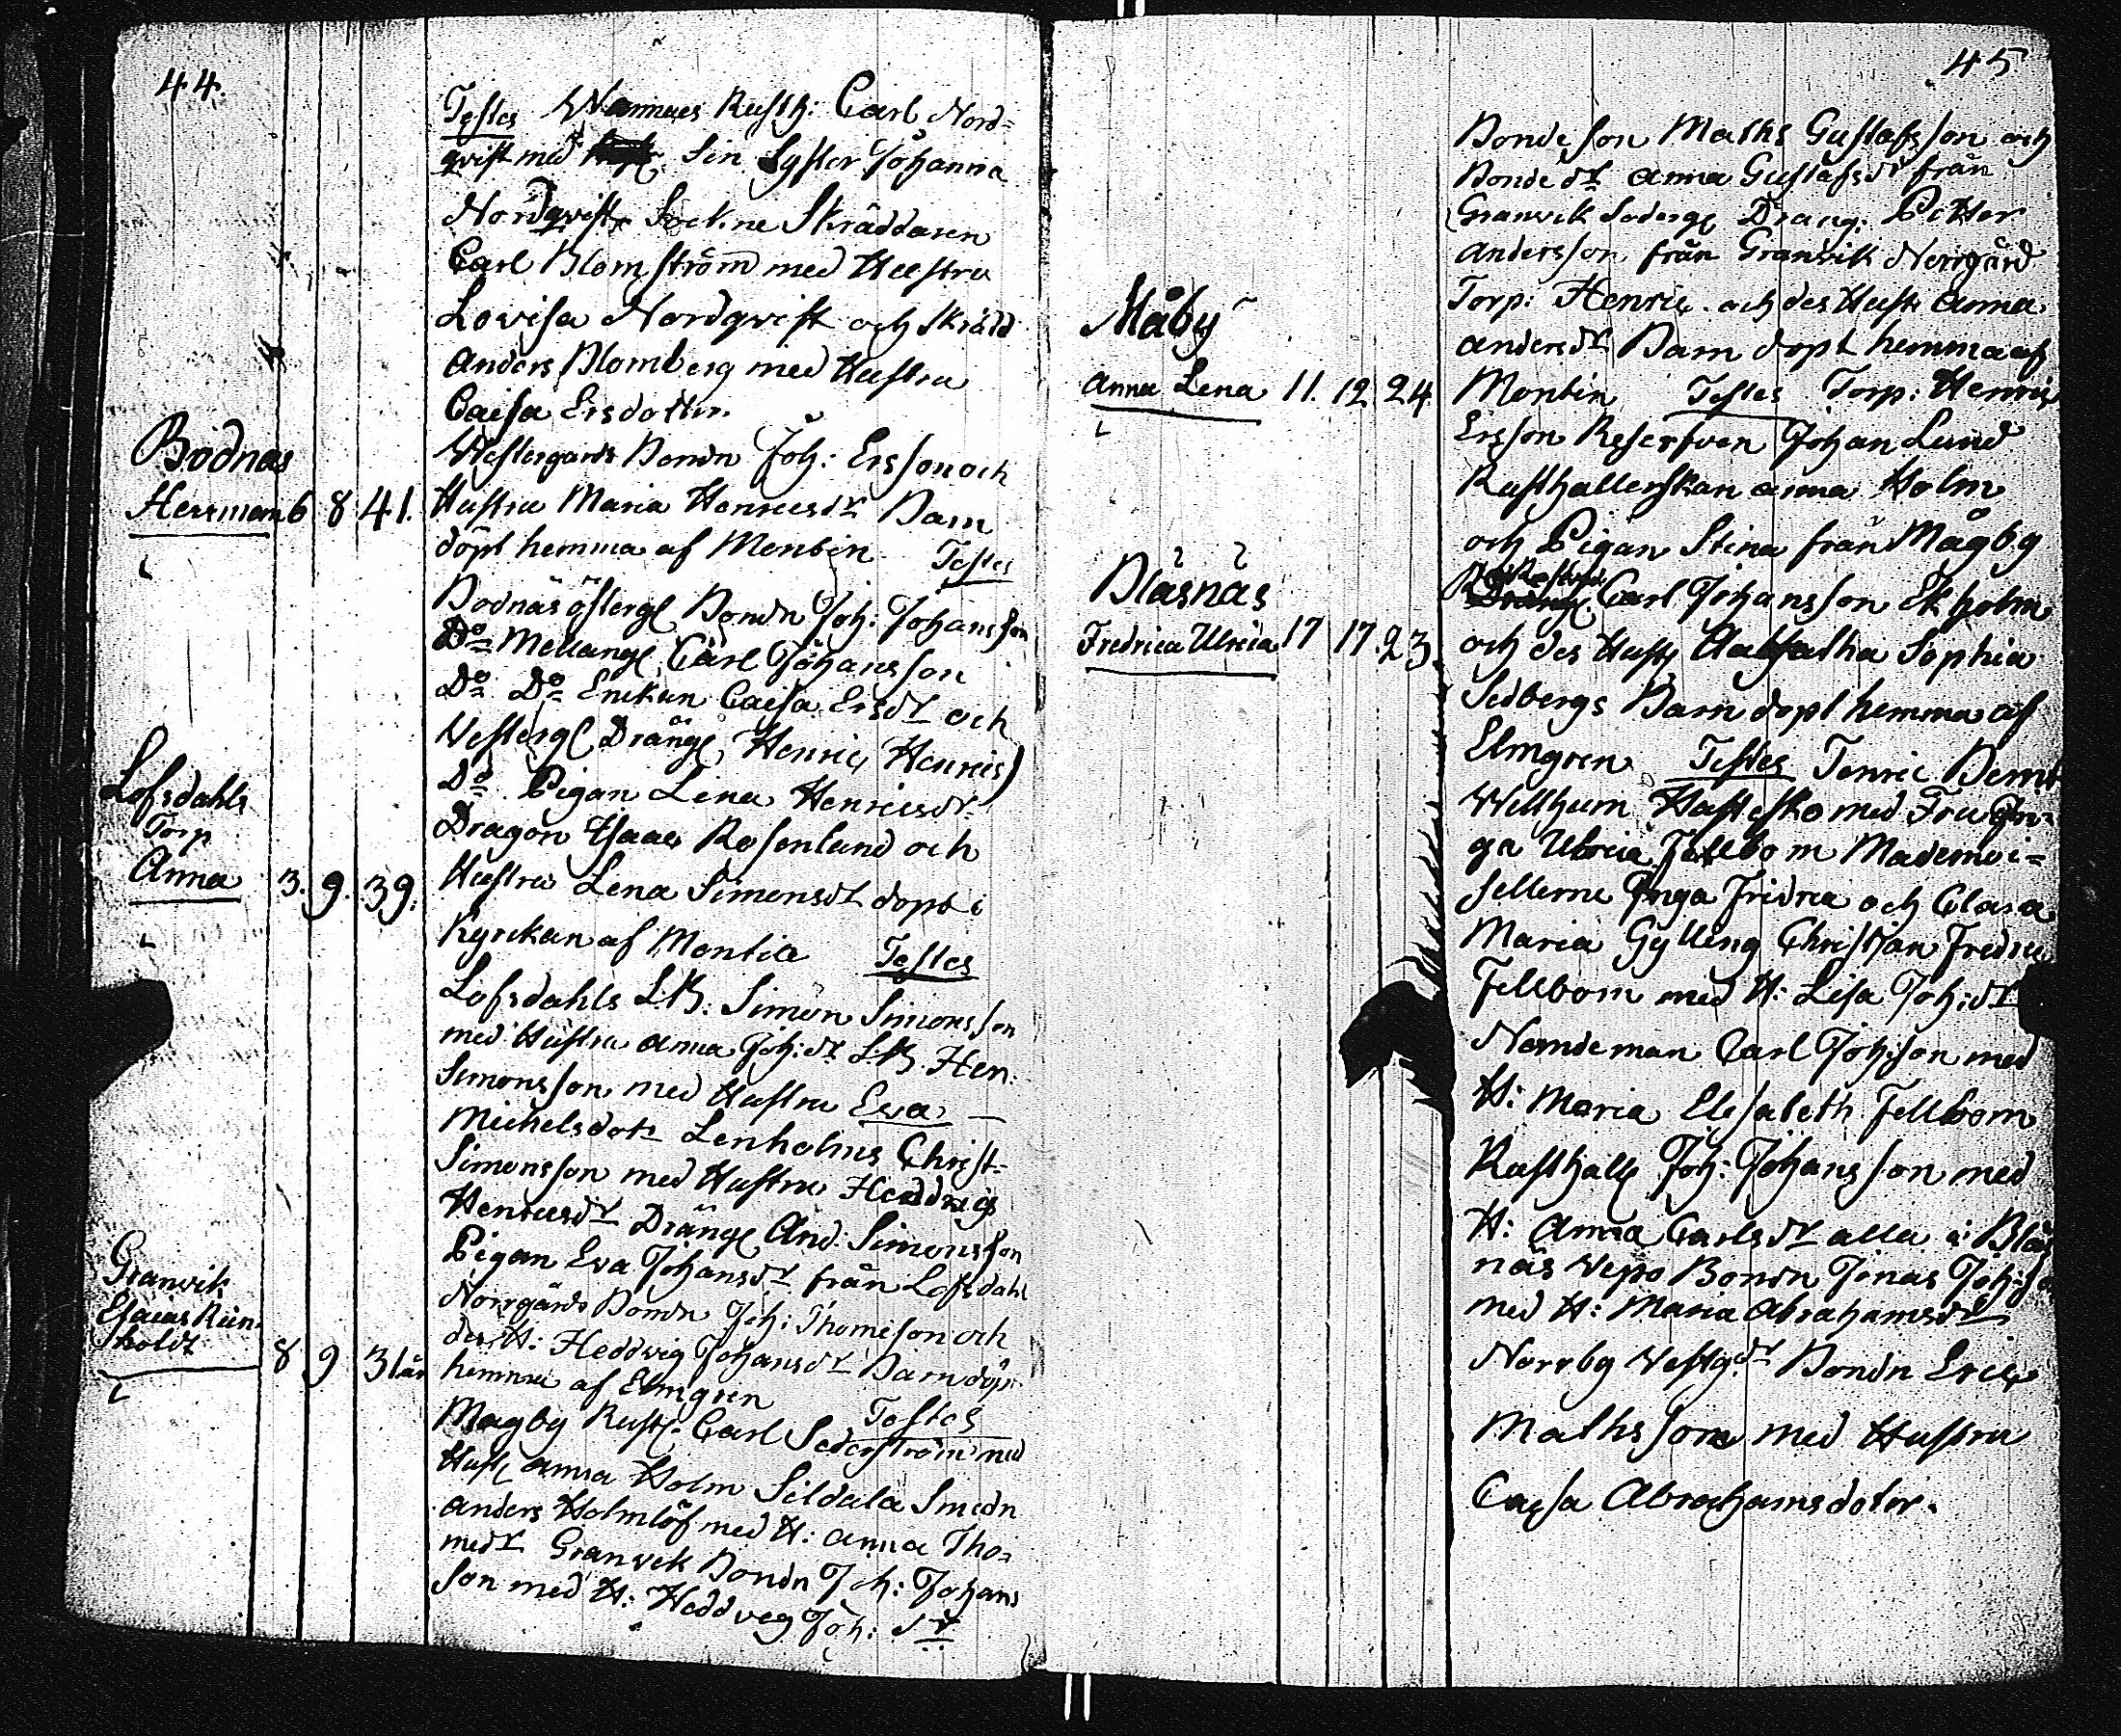 44.
Testes Wannaes Rusth: Carl Nord=
qvist med Sin Syster Johanna
Nordqvist Sockne Skräddaren
Carl Blomström med Hustru
Lovisa Nordqvist och Skrädd
Anders Blomberg med Hustru
Caisa Ersdotter.
Bodnäs
Herrman 6 8 41.
Westergards Bondn Joh: Ersson och
Hustru Maria Henricsdr Barn
döpt hemma af Montin Testes
Bodnäs östergl Bondn Joh: Johansson
Do Mellangl Carl Johansson
Do Do Enckan Caisa Ersdr och
Vestergl Drängl Henric Henrics)
Do Pigan Lena Henricsdr
Lofsdahls
Torp
Anna 3. 9. 39.
Dragon Isaac Rosenlund och
Hustru Lena Simonsdr döpt i
Kyrckan af Montin Testes
Lofsdahls L.B: Simon Simonsson
med Hustru Anna Joh:dr L.B. Hen:
Simonsson med Hustru Eva —
Michelsdotr Lenholms Christ=
Simonsson med Hustru Heddvig
Henricsdr Drängl And: Simonsson
Pigan Eva Johansdr från Lofsdahl
Granvik
Esaias Rein=
holdt 8 9 31 år
Norrgårds Bondn Joh: Thomeson och
des H: Heddvig Johansdr Barn döpt
hemma af Elmgren Testes
Magby Rusth. Carl Sederström med
Hust Anna Holm Sildala Smedn
Anders Holmlöf med H: Anna Tho=
medr Granvik Bondn Joh: Johans
son med H: Heddveg Joh: dr
45
Bondeson Maths Gustafsson och
Bondedr Anna Gustafsdr från
Granvik Södergl Dräng. Petter
Andersson från Granvik Norrgård
Måby
Anna Lena 11. 12 24.
Torp: Henric och des Hustr Anna
andersdr Barn döpt hemma af
Montin Testes Torp: Henric
Ersson Reserfven Johan Lund
Rusthallerskan anna Holm
och Pigan Stina från Mågby
Bläsnäs
Fredrica Ulrica 17 17. 23.
Carl Johansson Ekholm
och des Hust Sophia
Sedbergs Barn döpt hemma af
Elmgren Testes Fenric Bernt
Willhum Hastesko med Fru In=
ga Ulrica Fellbom Mademoi=
sellerne Inga Fridrica och Clara
Maria Gylling Christian Fredric
Fellbom med H: Lisa Joh:dr
Nämdeman Carl Joh:son med
H: Maria Elisabeth Fellbom
Rusthall Joh: Johansson med
H: Anna Carlsdr alla i Bläs
näs Vepo Bondn Jonas Joh:son
med H: Maria Abrahamsdr
Norrby Vestg:dr Bondn Eric
Mathsson med Hustru
Caisa Abrahamsdoter.